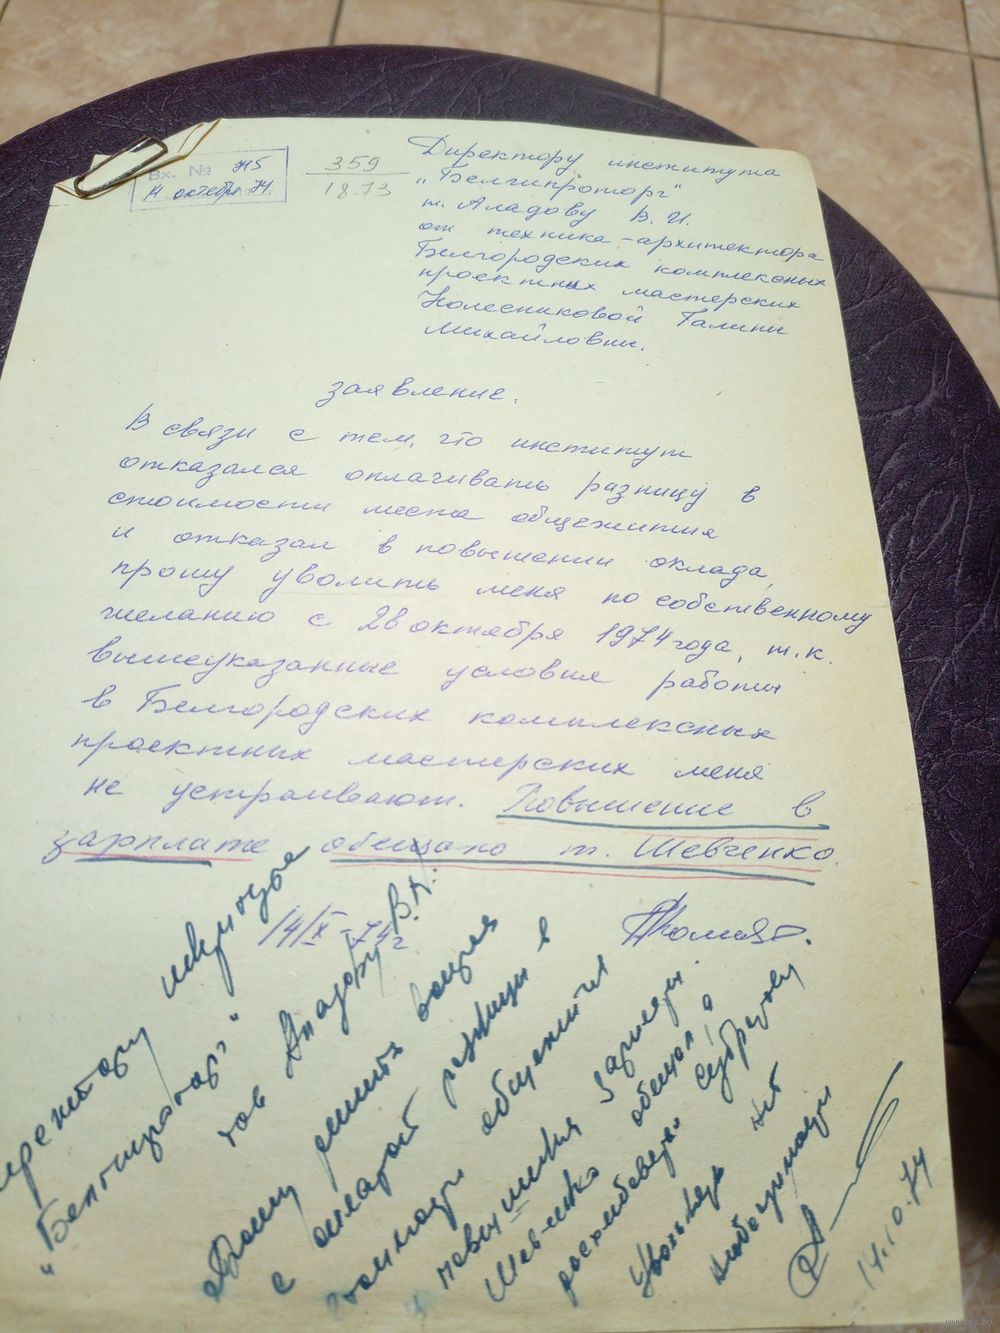 Вх. № 715
14 октября 74
359
18.73
Директору института
„Белгипроторг"
т. Аладову В. И.
от техника-архитектора
Белгородских комплексных
проектных мастерских
Колесниковой Галины
Михайловны.
заявление.
В связи с тем, что институт
отказался оплачивать разницу в
стоимости места общежития
и отказал в повышении оклада,
прошу уволить меня по собственному
желанию с 28 октября 1974 года, т.к.
вышеуказанные условия работы
в Белгородских комплексных
проектных мастерских меня
не устраивают. Повышение в
зарплате обещано т. Шевченко.
14/X-74г
Директору института
„Белгипроторг"
тов Аладову В.И.
Прошу решить вопрос
с оплатой разницы в
общежития
повышения зарплаты.
Шевченко обещал, а
Увольнять нет
14.10.74